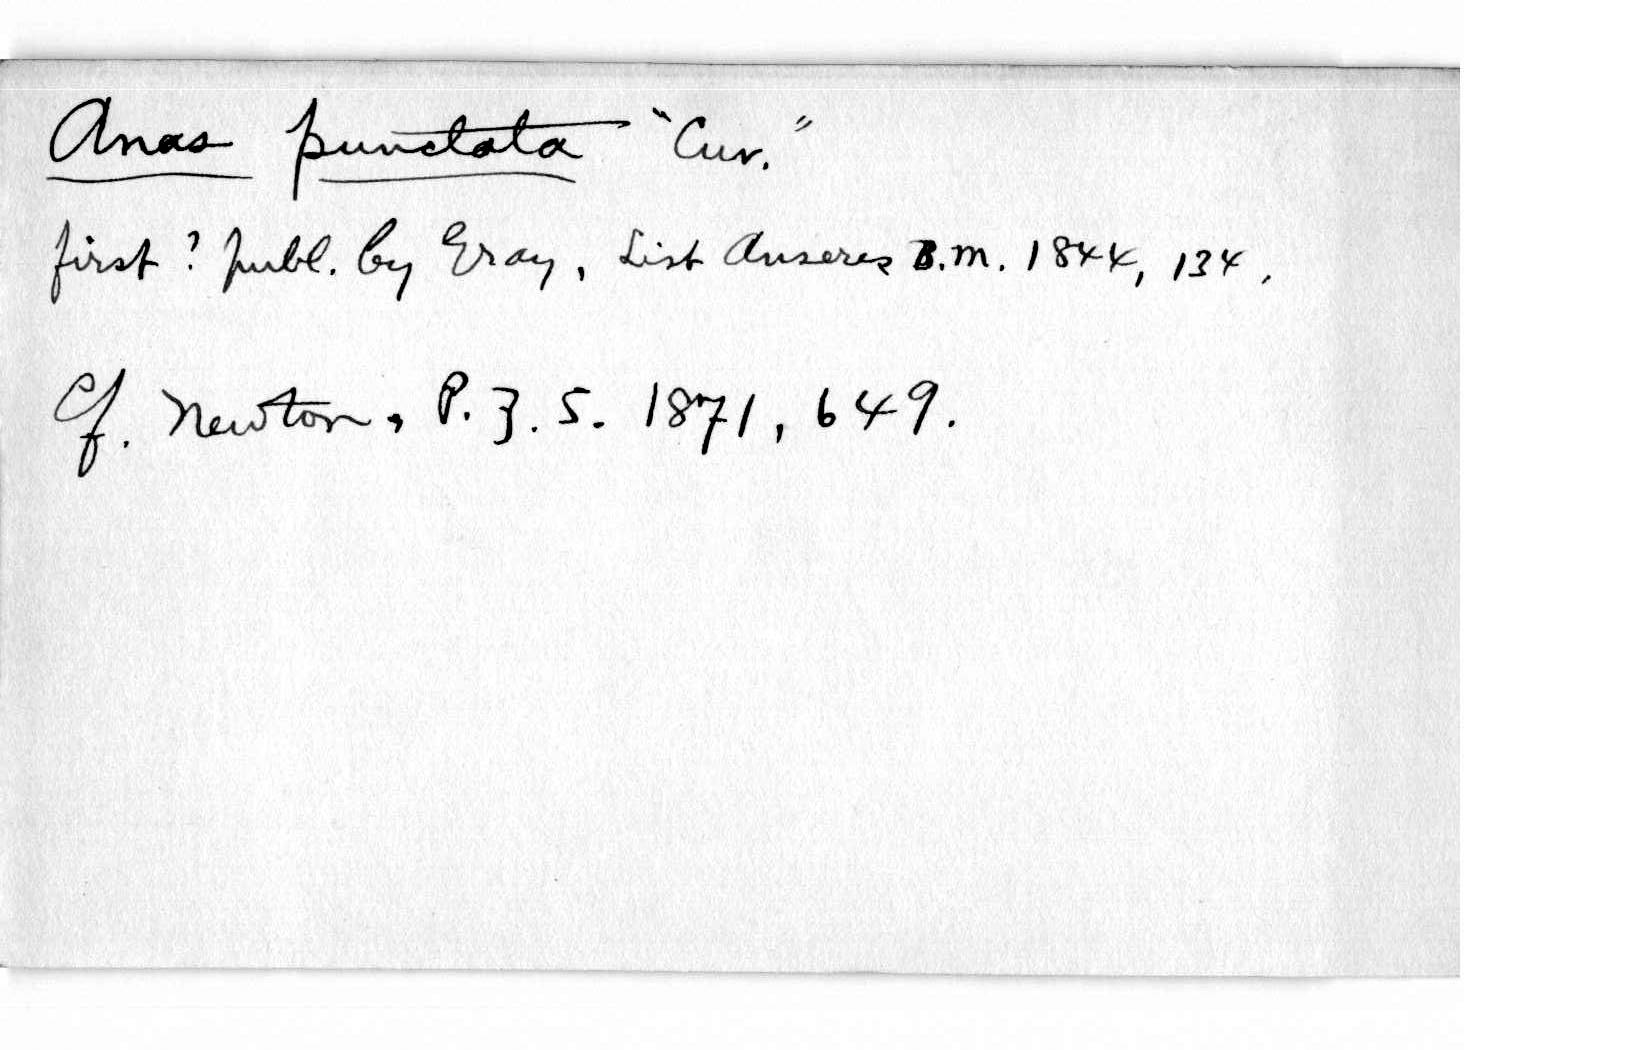 Anas punctata "Cuv."
first? publ. by Gray, List Anseres B.M. 1844, 134.
Cf. Newton, P.Z.S. 1871, 649.